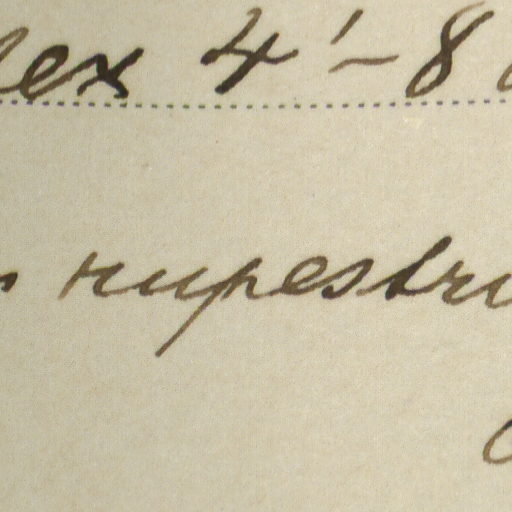 lex 4'-8
rupestri